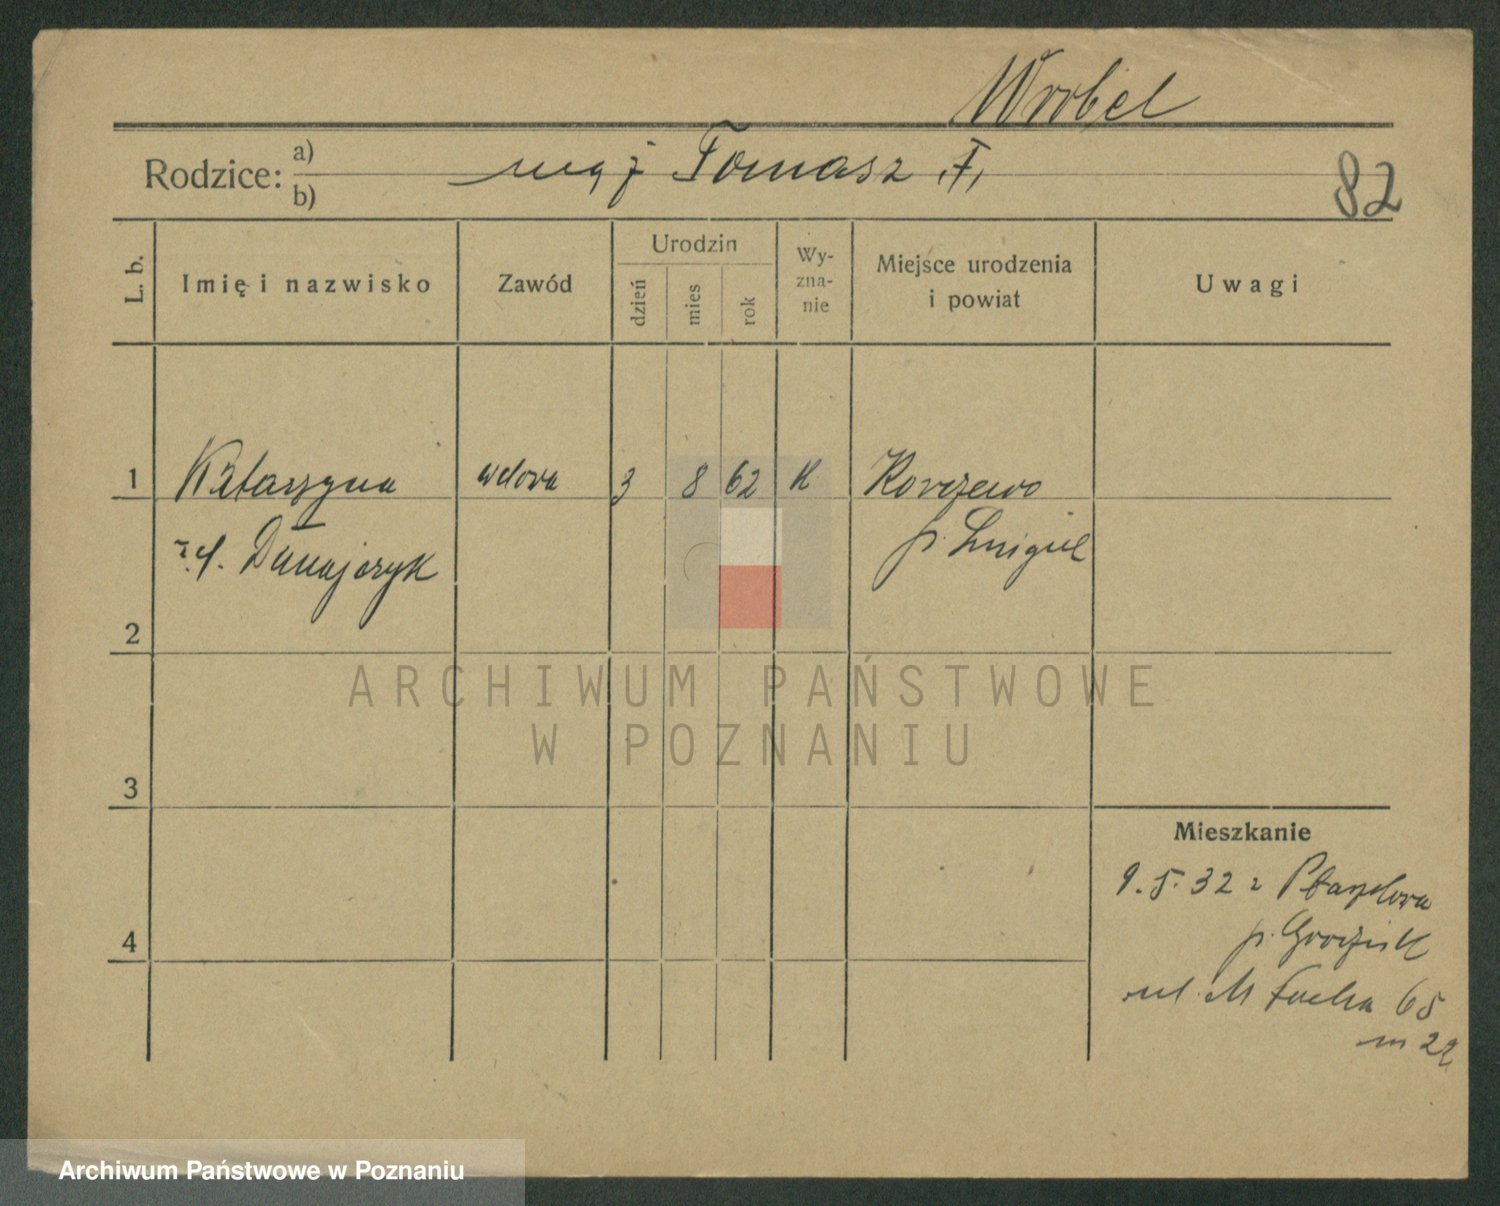 Wrobel
Rodzice: a) b) mąż Tomasz
82
L. b.
Imię i nazwisko
Zawód
Urodzin
dzień
mies
rok
Wy-
zna-
nie
Miejsce urodzenia
i powiat
Uwagi
1 Katarzyna wdova 3 8 62 K Korzewo
Dunajczyk p. Śmigiel
2
3
4
ARCHIWUM PAŃSTWOWE
W POZNANIU
Mieszkanie
9.5.32 z
p. Grodzisk
ul. M Focha 65
m 22
Archiwum Państwowe w Poznaniu